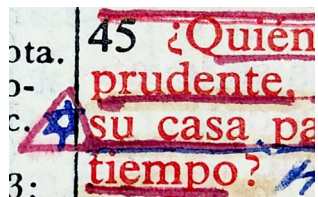 ota.
o-
c.
3:
45 ¿Quién
prudente,
su casa pa
tiempo?